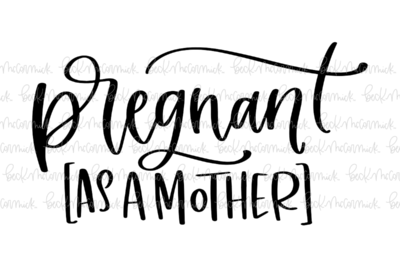 pregnant
[AS A MOTHER]